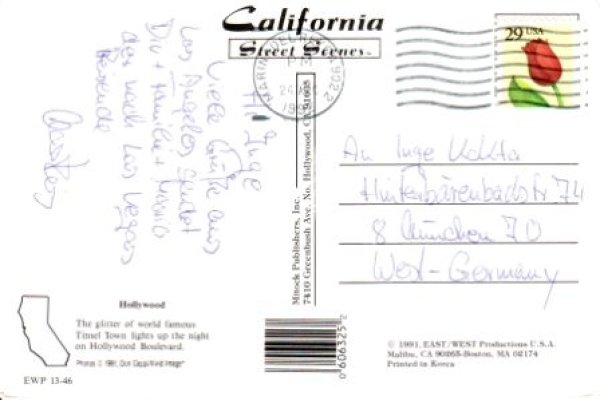 California
Street Scenes™
29 USA
MARINA DEL REY, CA 90292
Hi Inge
Viele Grüße aus
Los Angeles sendet
Dir + Familie + Mama
der nach Las Vegas
Reisende
Mitock Publishers, Inc.
7410 Greenbush Ave. No. Hollywood, CA 91605
An Inge
Hinterbärenbadstr 74
8 München 70
West-Germany
Hollywood
The glitter of world famous
Tinsel Town lights up the night
on Hollywood Boulevard.
Photos © 1991, Don Cappi/West Image™
EWP 13-46
0 606325 2
© 1991, EAST/WEST Productions U.S.A.
Malibu, CA 90265-Boston, MA 02174
Printed in Korea